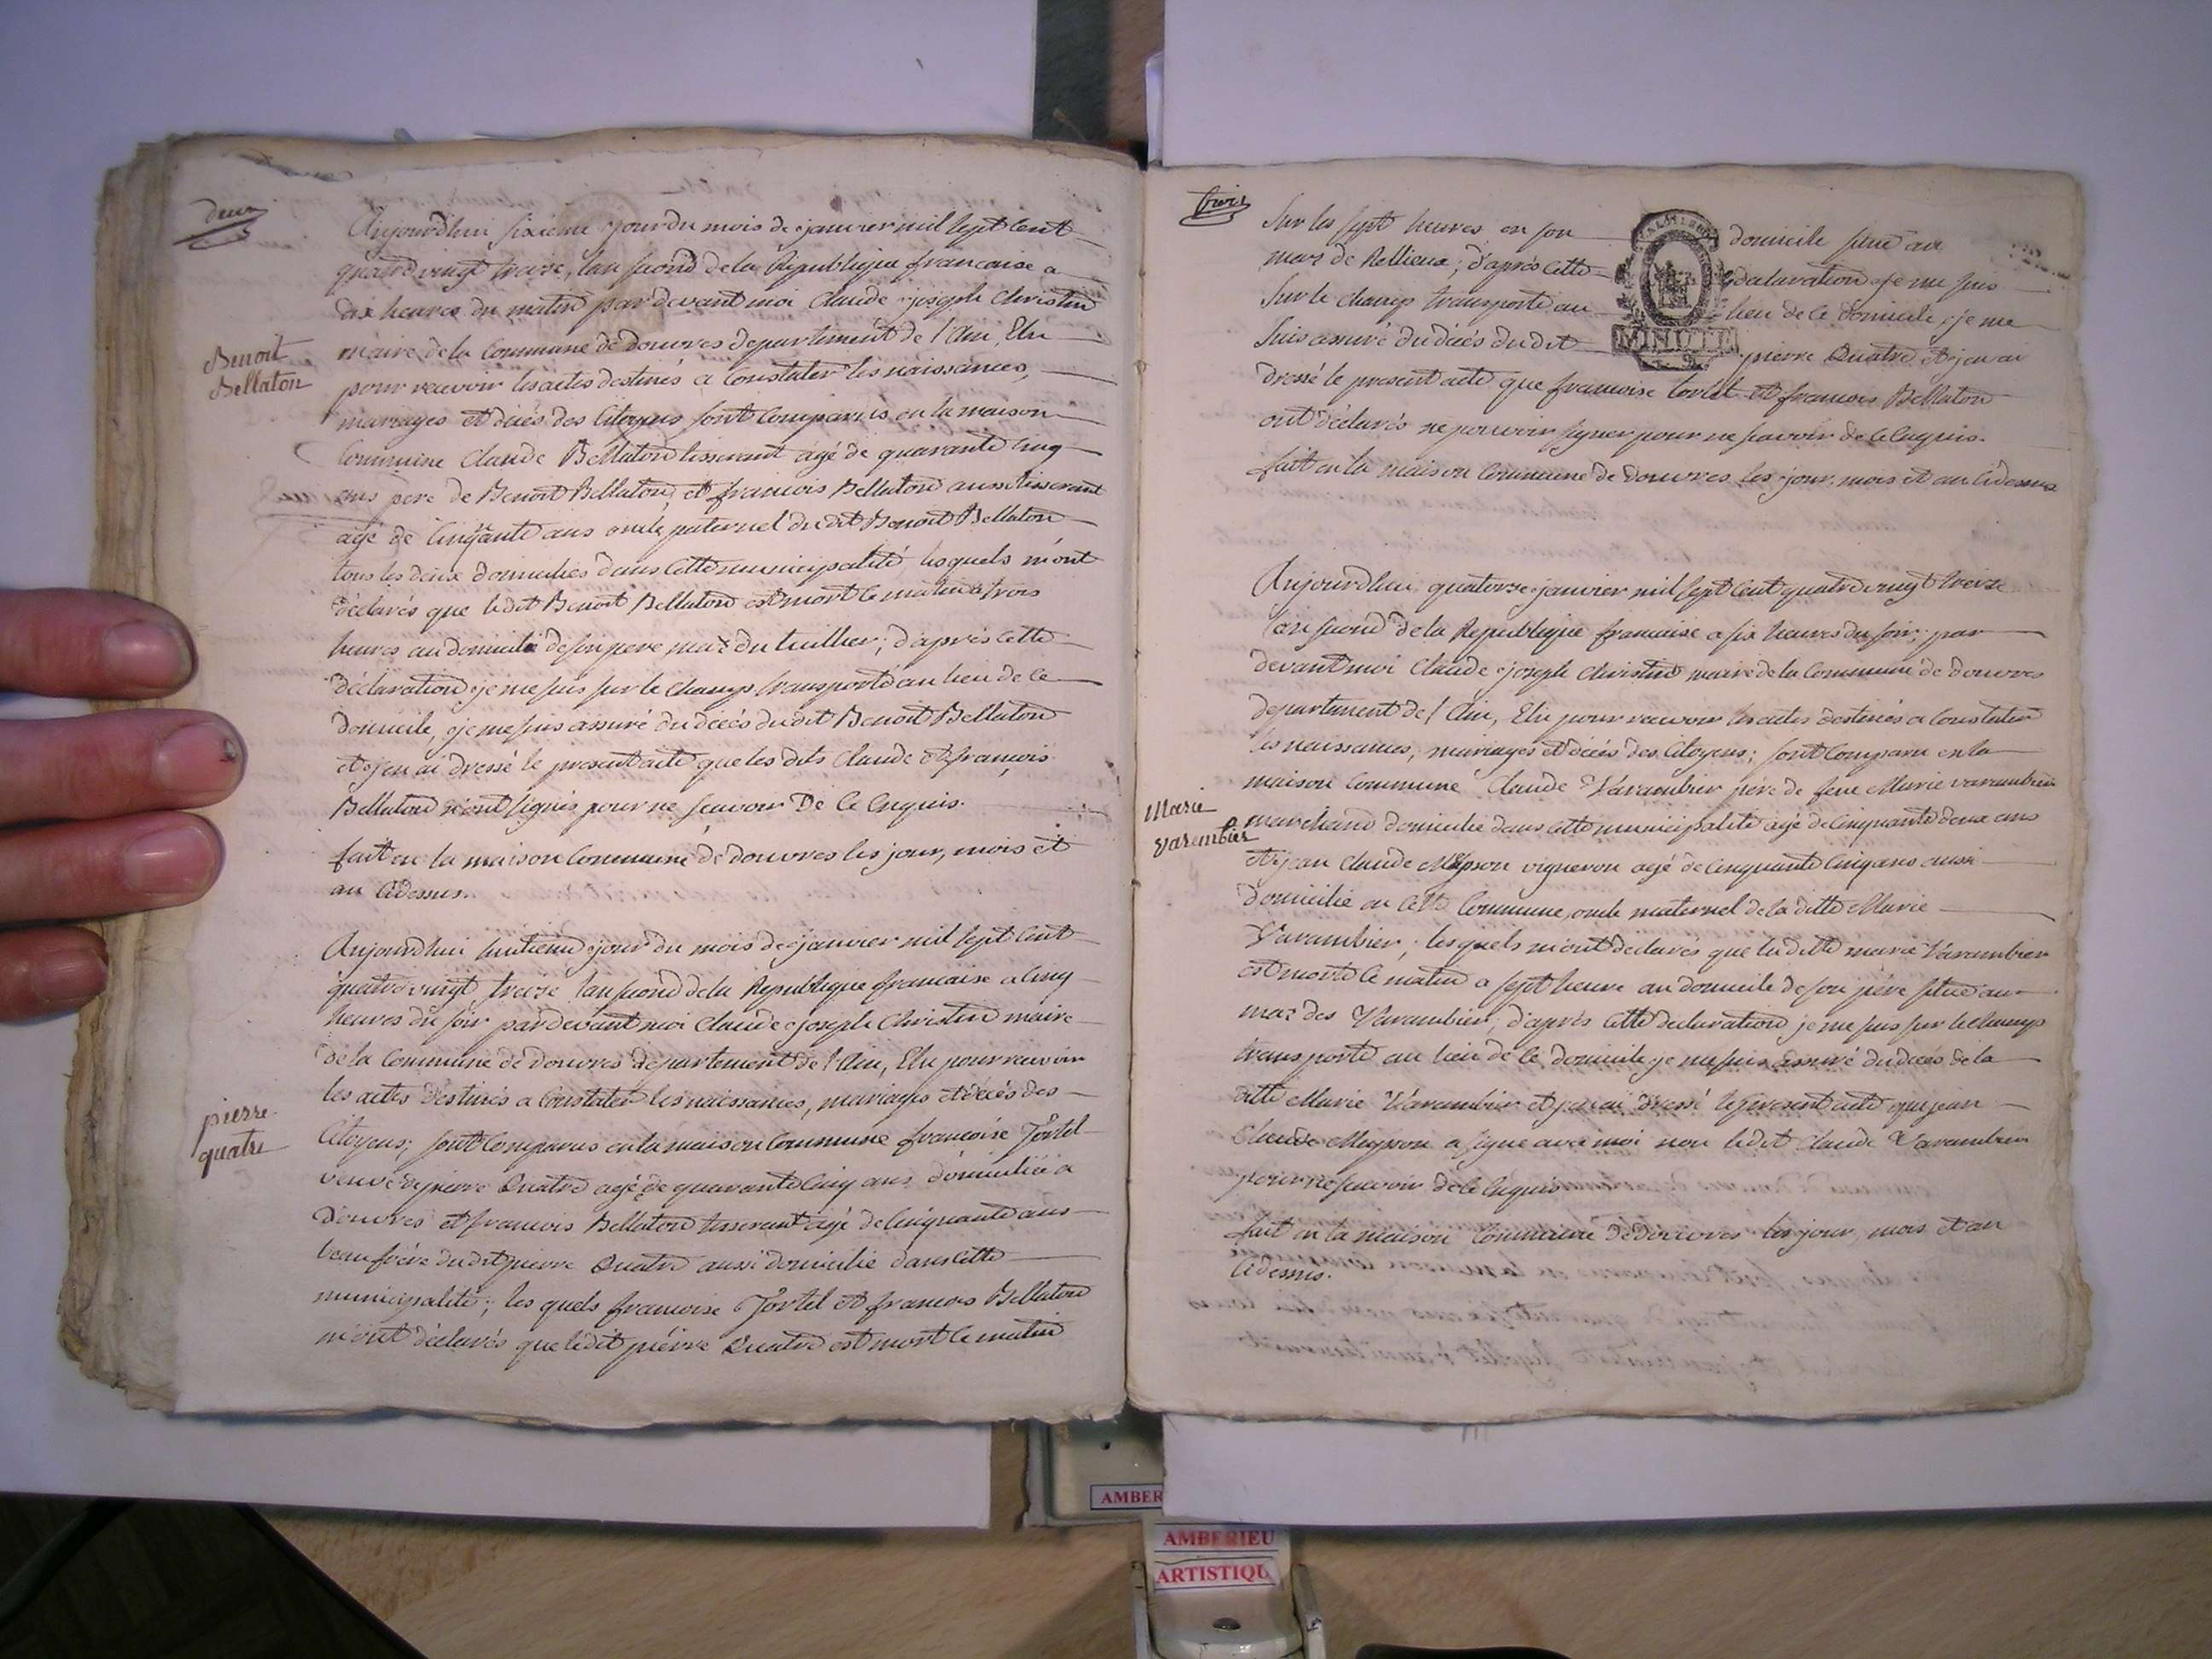 deux
Aujourdhui sixieme jour du mois de janvier mil sept cent
quatre vingt treize, lan second de la Republique francaise a
dix heures du matin par devant moi Claude joseph Christin
maire de la Commune de douvres departement de l'Ain, Elu
Benoit
Bellaton
pour recevoir les actes destinés a Constater les naissances,
mariages et décés des Citoyens sont Comparus en la maison
Commune Claude Bellaton tisserant agé de quarante cinq
ans pere de Benoit Bellaton, et francois Bellaton aussi tisserant
agé de Cinqante ans oncle paternel du dit Benoit Bellaton
tous les deux domiciliés dans Cette municipalité, les quels m'ont
déclarés que le dit Benoit Bellaton est mort ce matin a trois
heures au domicile de son pere, maz du tuillier; d'après cette
déclaration je me suis sur le champ transporté au lieu de ce
domicile, je me suis assuré du décés du dit Benoit Bellaton
et j'en ai dressé le present acte que les dits Claude et françois
Bellaton n'ont signés pour ne scavoir De Ce Enquis.
fait en la maison Commune de douvres les jour, mois et
an Cidessus.
Aujourdhui huitieme jour du mois de janvier mil sept cent
quatre vingt treize lan second de la Republique francaise a Cinq
heures du soir par devant moi Claude joseph Christin maire
de la Commune de douvres departement de l'Ain, Elu pour recevoir
les actes destinés a Constater les naissances, mariages et décés des
pierre
quatre
Citoyens; sont Comparus en la maison Commune francoise Tortel
veuve de pierre Quatre agé de quarante Cinq ans domiciliée a
Douvres et francois Bellaton tisserant agé de Cinquante ans
beau frére du dit pierre Quatre aussi domicilié dans Cette
municipalité; les quels francoise Tortel et francois Bellaton
m'ont déclarés que le dit piérre Quatre est mort ce matin
trois
Sur les sept heures en son domicile situé au
maz de Rellieux; d'après cette déclaration je me suis
Sur le champ transporté au lieu de ce domicile, je me
Suis assuré du décés du dit pierre Quatre et j'en ai
MINUTE
dressé le present acte que francoise tortel et francois Bellaton
ont déclarés ne pouvoir signer pour ne scavoir de Ce Enquis.
fait en la maison Commune de Douvres les jour, mois et an Cidessus
Aujourdhui quatorze janvier mil sept Cent quatre vingt treize
lan second de la Republique francaise a six heures du soir; par
devant moi Claude joseph Christin maire de la Commune de douvres
departement de l'Ain, Elu pour recevoir les actes destinés a Constater
les naissances, mariages et décés des Citoyens; sont Comparu en la
maison Commune Claude Varambier pére de feue Marie varambier
Marie
varambier
marchand domicilié dans cette municipalité agé de Cinquante deux ans
et jean Claude vigneron agé de Cinquante Cinq ans aussi
domicilié en Cette Commune, oncle maternel de la ditte Marie
Varambier; les quels m'ont declarés que la ditte marie Varambier
est morte ce matin a sept heure au domicile de son pére situé au
maz des Varambier, d'après cette declaration je me suis sur le champ
transporté au lieu de ce domicile je me suis assuré du décés de la
ditte Marie Varambier et j'en ai dressé le present acte que jean
Claude a signe avec moi non ledit Claude Varambier
pour ne scavoir de Ce Enquis
fait en la maison Commune de Douvres les jour, mois et an
Cidessus.
AMBER
AMBERIEU
ARTISTIQU